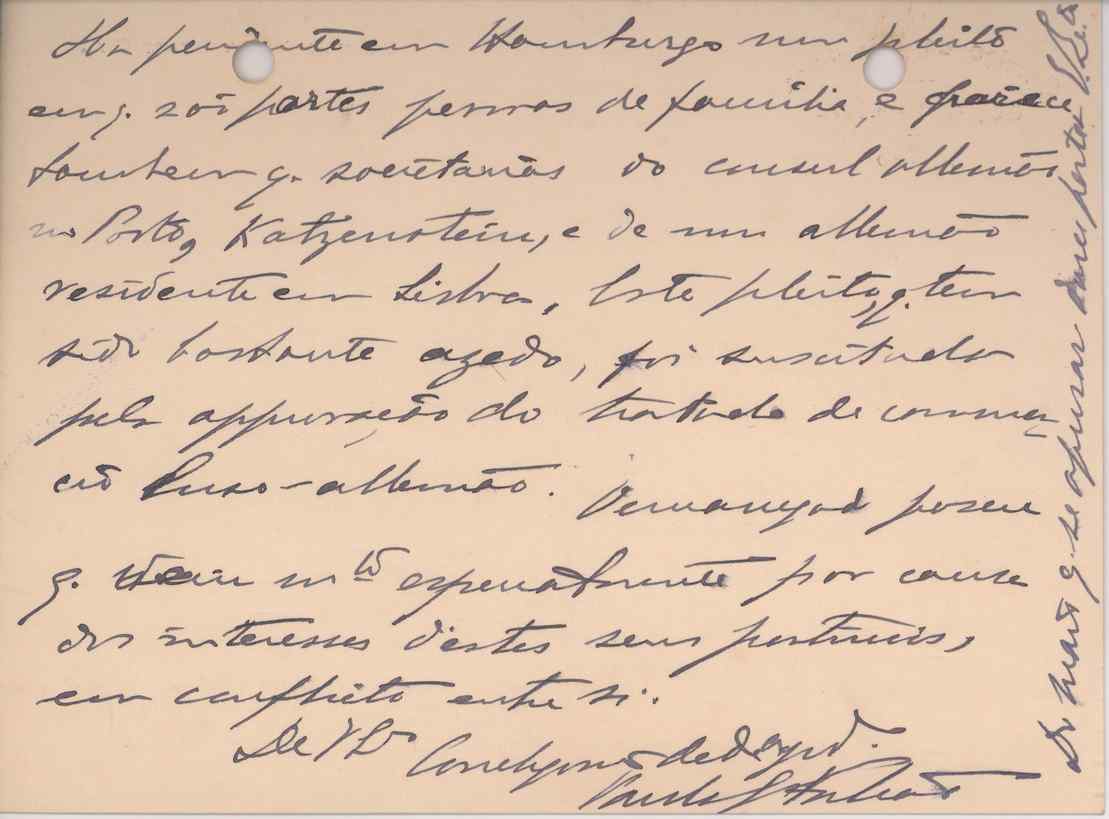 Ha pendente em Hamburgo um pleito
em q. são partes pessoas de familia, e parece
tambem q. societarias do consul allemão
no Porto, Katzenstein, e de um allemão
residente em Lisboa. Este pleito, q. tem
sido bastante azedo, foi suscitado
pela approvação do tratado de commer-
cio luso-allemão.
q. m.to especialmente por causa
dos interesses d'estes seus patricios,
em conflicto entre si.
De V. Ex.a
Do mais q. se apurar darei parte a V. Ex.a